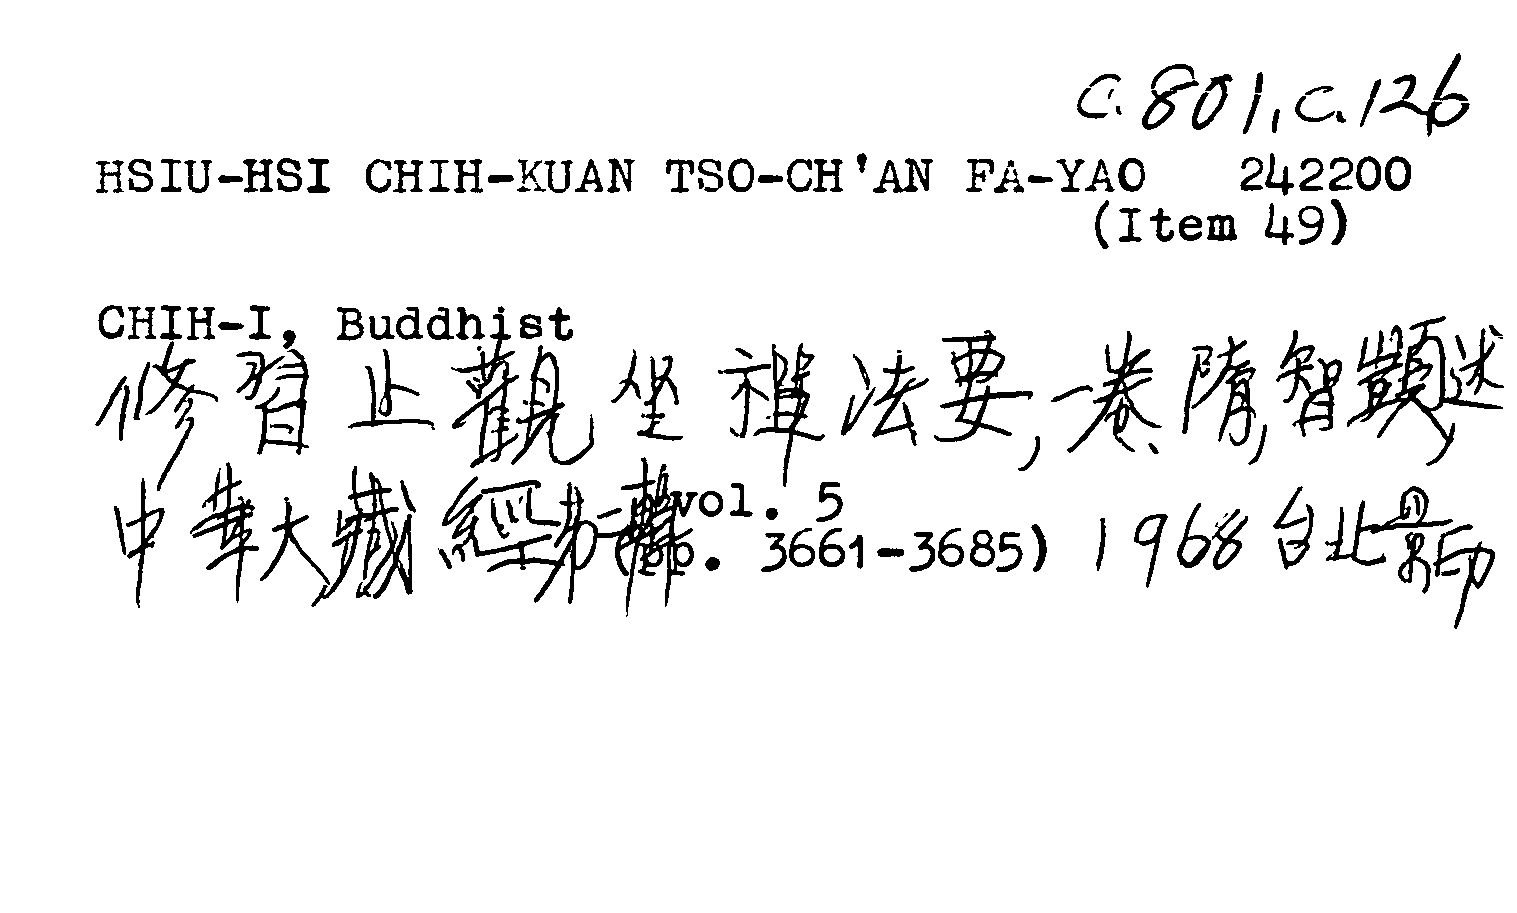 C.801, C.126
HSIU-HSI CHIH-KUAN TSO-CH'AN FA-YAO 242200
(Item 49)
CHIH-I, Buddhist
修習止觀坐禪法要,一卷,隋,智顗述,
中華大藏經第一輯 vol. 5
(pp. 3661-3685) 1968 台北景印